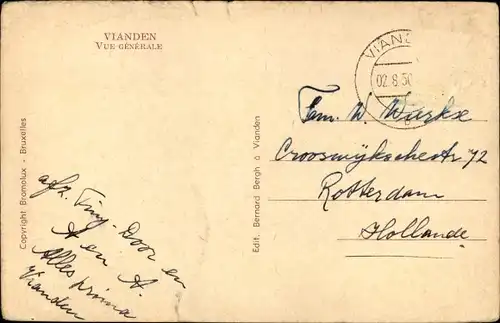 VIANDEN
VUE GÉNÉRALE
VIAND
02.8.50
Copyright Bromolux - Bruxelles
Edit. Bernard Bergh à Vianden
Fam. W. Warkse
Crooswijkschestr 72
Rotterdam
Hollande
afz. Tiny. Door en
A en A.
Alles prima
Vianden